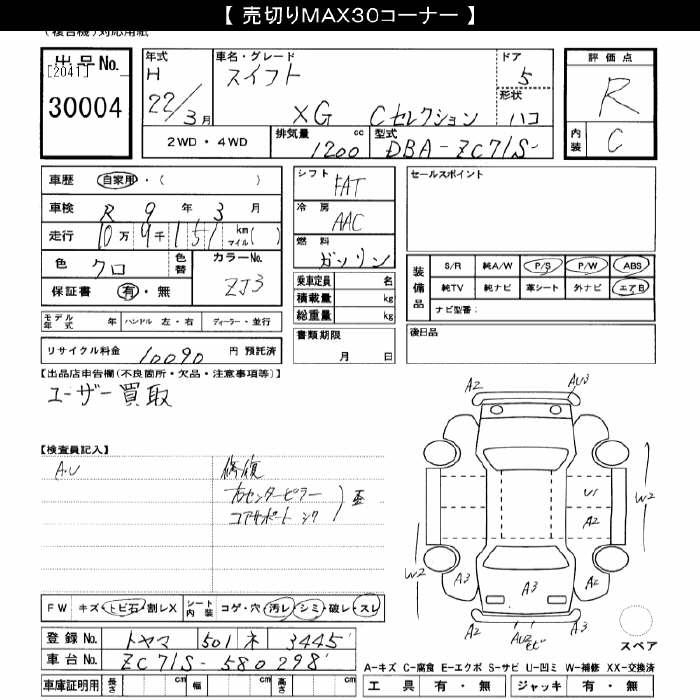 【 売切りMAX30コーナー 】
(複合機)対応用紙
出品No. [2041] 30004
年式 H 22/3月
車名・グレード スイフト
XG Cセレクション
ドア 5
形状 ハコ
評価点 R
内装 C
2WD・4WD
排気量 1200 cc
型式 DBA-ZC71S-
車歴 自家用・( )
車検 R 9 年 3 月
走行 10万 9千 151 km マイル( )
色 クロ 色替
カラーNo. ZJ3
保証書 有・無
モデル年式 年 ハンドル 左・右 ディーラー・並行
リサイクル料金 10090 円 預託済
シフト FAT
冷房 AAC
燃料 ガソリン
乗車定員 名
積載量 kg
総重量 kg
書類期限 月 日
セールスポイント
装備品 S/R 純A/W P/S P/W ABS
純TV 純ナビ 革シート 外ナビ エアB
ナビ型番:
後日品
【出品店申告欄(不良箇所・欠品・注意事項等)】
ユーザー買取
【検査員記入】
A.U
修復
右センターピラー
コアサポート
歪
A2 AU3
U1 W2
A2
W2 A3 A3 A2
A2
スペア
FW キズ・トビ石・割レX シート内装 コゲ・穴・汚レ・シミ・破レ・スレ
登録No. トヤマ 501 ネ 3445
車台No. ZC71S-580298
車庫証明用 長さ cm 幅 cm 高さ cm
A-キズ C-腐食 E-エクボ S-サビ U-凹ミ W-補修 XX-交換済
工具 有・無 ジャッキ 有・無